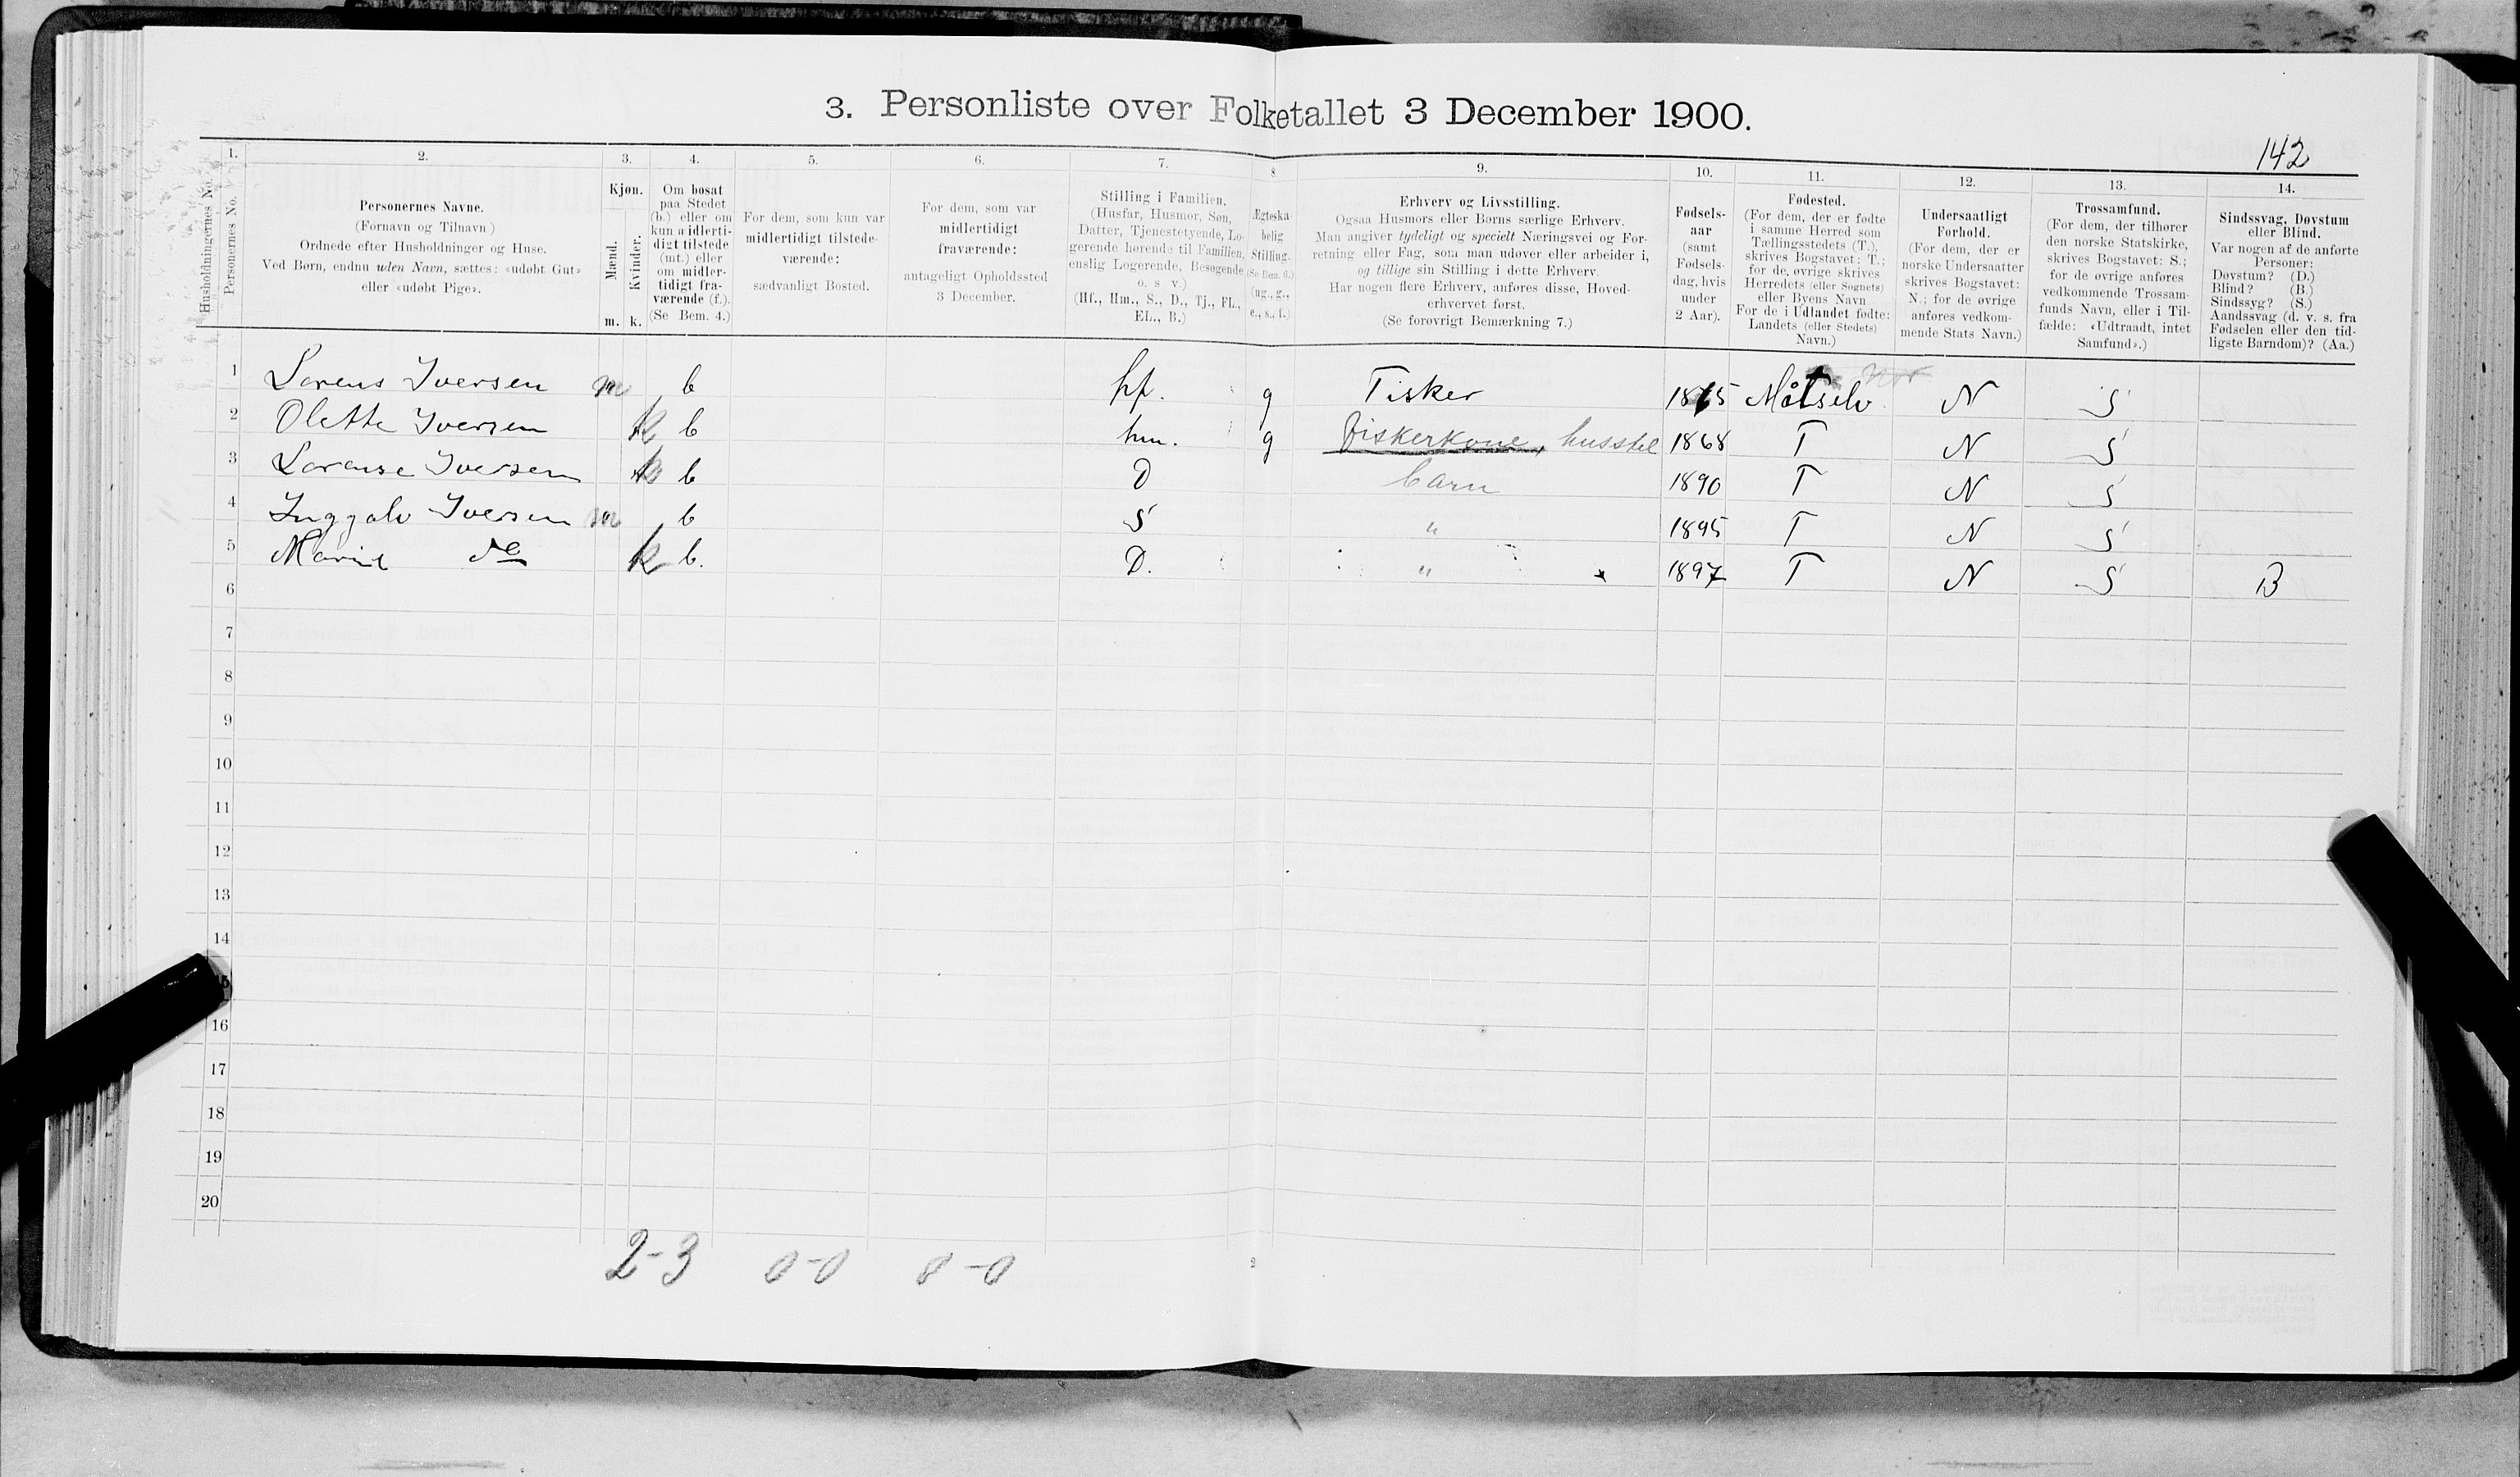 3. Personliste over Folketallet 3 December 1900.
142
1. 2. 3. 4. 5. 6. 7. 8 9. 10. 11. 12. 13. 14.
Husholdningernes No.
Personernes No.
Personernes Navne.
(Fornavn og Tilnavn)
Ordnede efter Husholdninger og Huse.
Ved Børn, endnu uden Navn, sættes: «udøbt Gut»
eller «udøbt Pige».
Kjøn.
Mænd.
Kvinder.
m. k.
Om bosat
paa Stedet
(b.) eller om
kun midlerti-
digt tilstede
(mt.) eller
om midler-
tidigt fra-
værende (f.).
(Se Bem. 4.)
For dem, som kun var
midlertidigt tilstede-
værende:
sædvanligt Bosted.
For dem, som var
midlertidigt
fraværende:
antageligt Opholdssted
3 December.
Stilling i Familien.
(Husfar, Husmor, Søn,
Datter, Tjenestetyende, Lo-
gerende hørende til Familien,
enslig Logerende, Besøgende
o. s v.)
(Hf., Hm., S., D., Tj., FL.,
EL., B.)
Ægteska-
belig
Stilling.
(Se Bem. 6.)
(ug., g.,
e., s., f.)
Erhverv og Livsstilling.
Ogsaa Husmors eller Børns særlige Erhverv.
Man angiver tydeligt og specielt Næringsvei og For-
retning eller Fag, som man udøver eller arbeider i,
og tillige sin Stilling i dette Erhverv.
Har nogen flere Erhverv, anføres disse, Hoved-
erhvervet først.
(Se forøvrigt Bemærkning 7.)
Fødsels-
aar
(samt
Fødsels-
dag, hvis
under
2 Aar).
Fødested.
(For dem, der er fødte
i samme Herred som
Tællingsstedets (T.),
skrives Bogstavet: T.;
for de øvrige skrives
Herredets (eller Sognets)
eller Byens Navn
For de i Udlandet fødte:
Landets (eller Stedets)
Navn.)
Undersaatligt
Forhold.
(For dem, der er
norske Undersaatter
skrives Bogstavet:
N.; for de øvrige
anføres vedkom-
mende Stats Navn.)
Trossamfund.
(For dem, der tilhører
den norske Statskirke,
skrives Bogstavet: S.;
for de øvrige anføres
vedkommende Trossam-
funds Navn, eller i Til-
fælde: «Udtraadt, intet
Samfund».)
Sindssvag, Døvstum
eller Blind.
Var nogen af de anførte
Personer:
Døvstum? (D.)
Blind? (B.)
Sindssyg? (S.)
Aandssvag (d. v. s. fra
Fødselen eller den tid-
ligste Barndom)? (Aa.)
1 Lorens Iversen m b hf. g Fisker 1865 Målselv N S
2 Olette Iversen k b hm. g Fiskerkone, husstel 1868 T N S
3 Lorense Iversen k b D barn 1890 T N S
4 Inggolv Iversen m b S " 1895 T N S
5 Marie do k b. D. " x 1897 T N S B
6
7
8
9
10
11
12
13
14
16
17
18
19
20
2-3 0-0 0-0
2